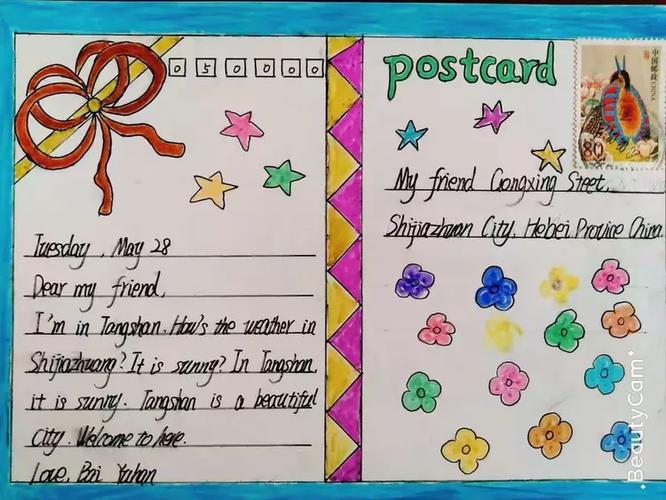 050000
Tuesday, May 28
Dear my friend,
I'm in Tangshan. How's the weather in
Shijiazhuang? It is sunny? In Tangshan,
it is sunny. Tangshan is a beautiful
city. Welcome to here.
Love, Bai Yahan
postcard
中国邮政
CHINA
80
My friend Gongxing Steet,
Shijiazhuan City, Hebei Provice China.
BeautyCam